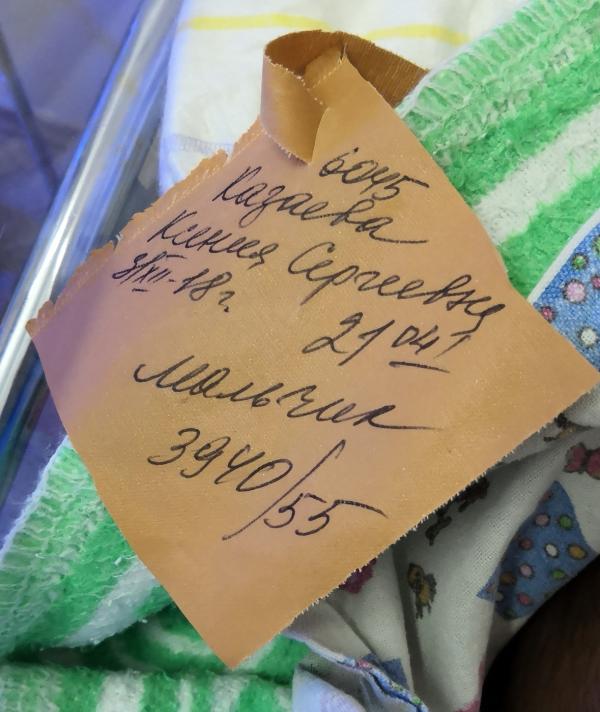 6045
Казаева
Ксения Сергеевна
31/XII-18 г.
21 04'
мальчик
3940/55